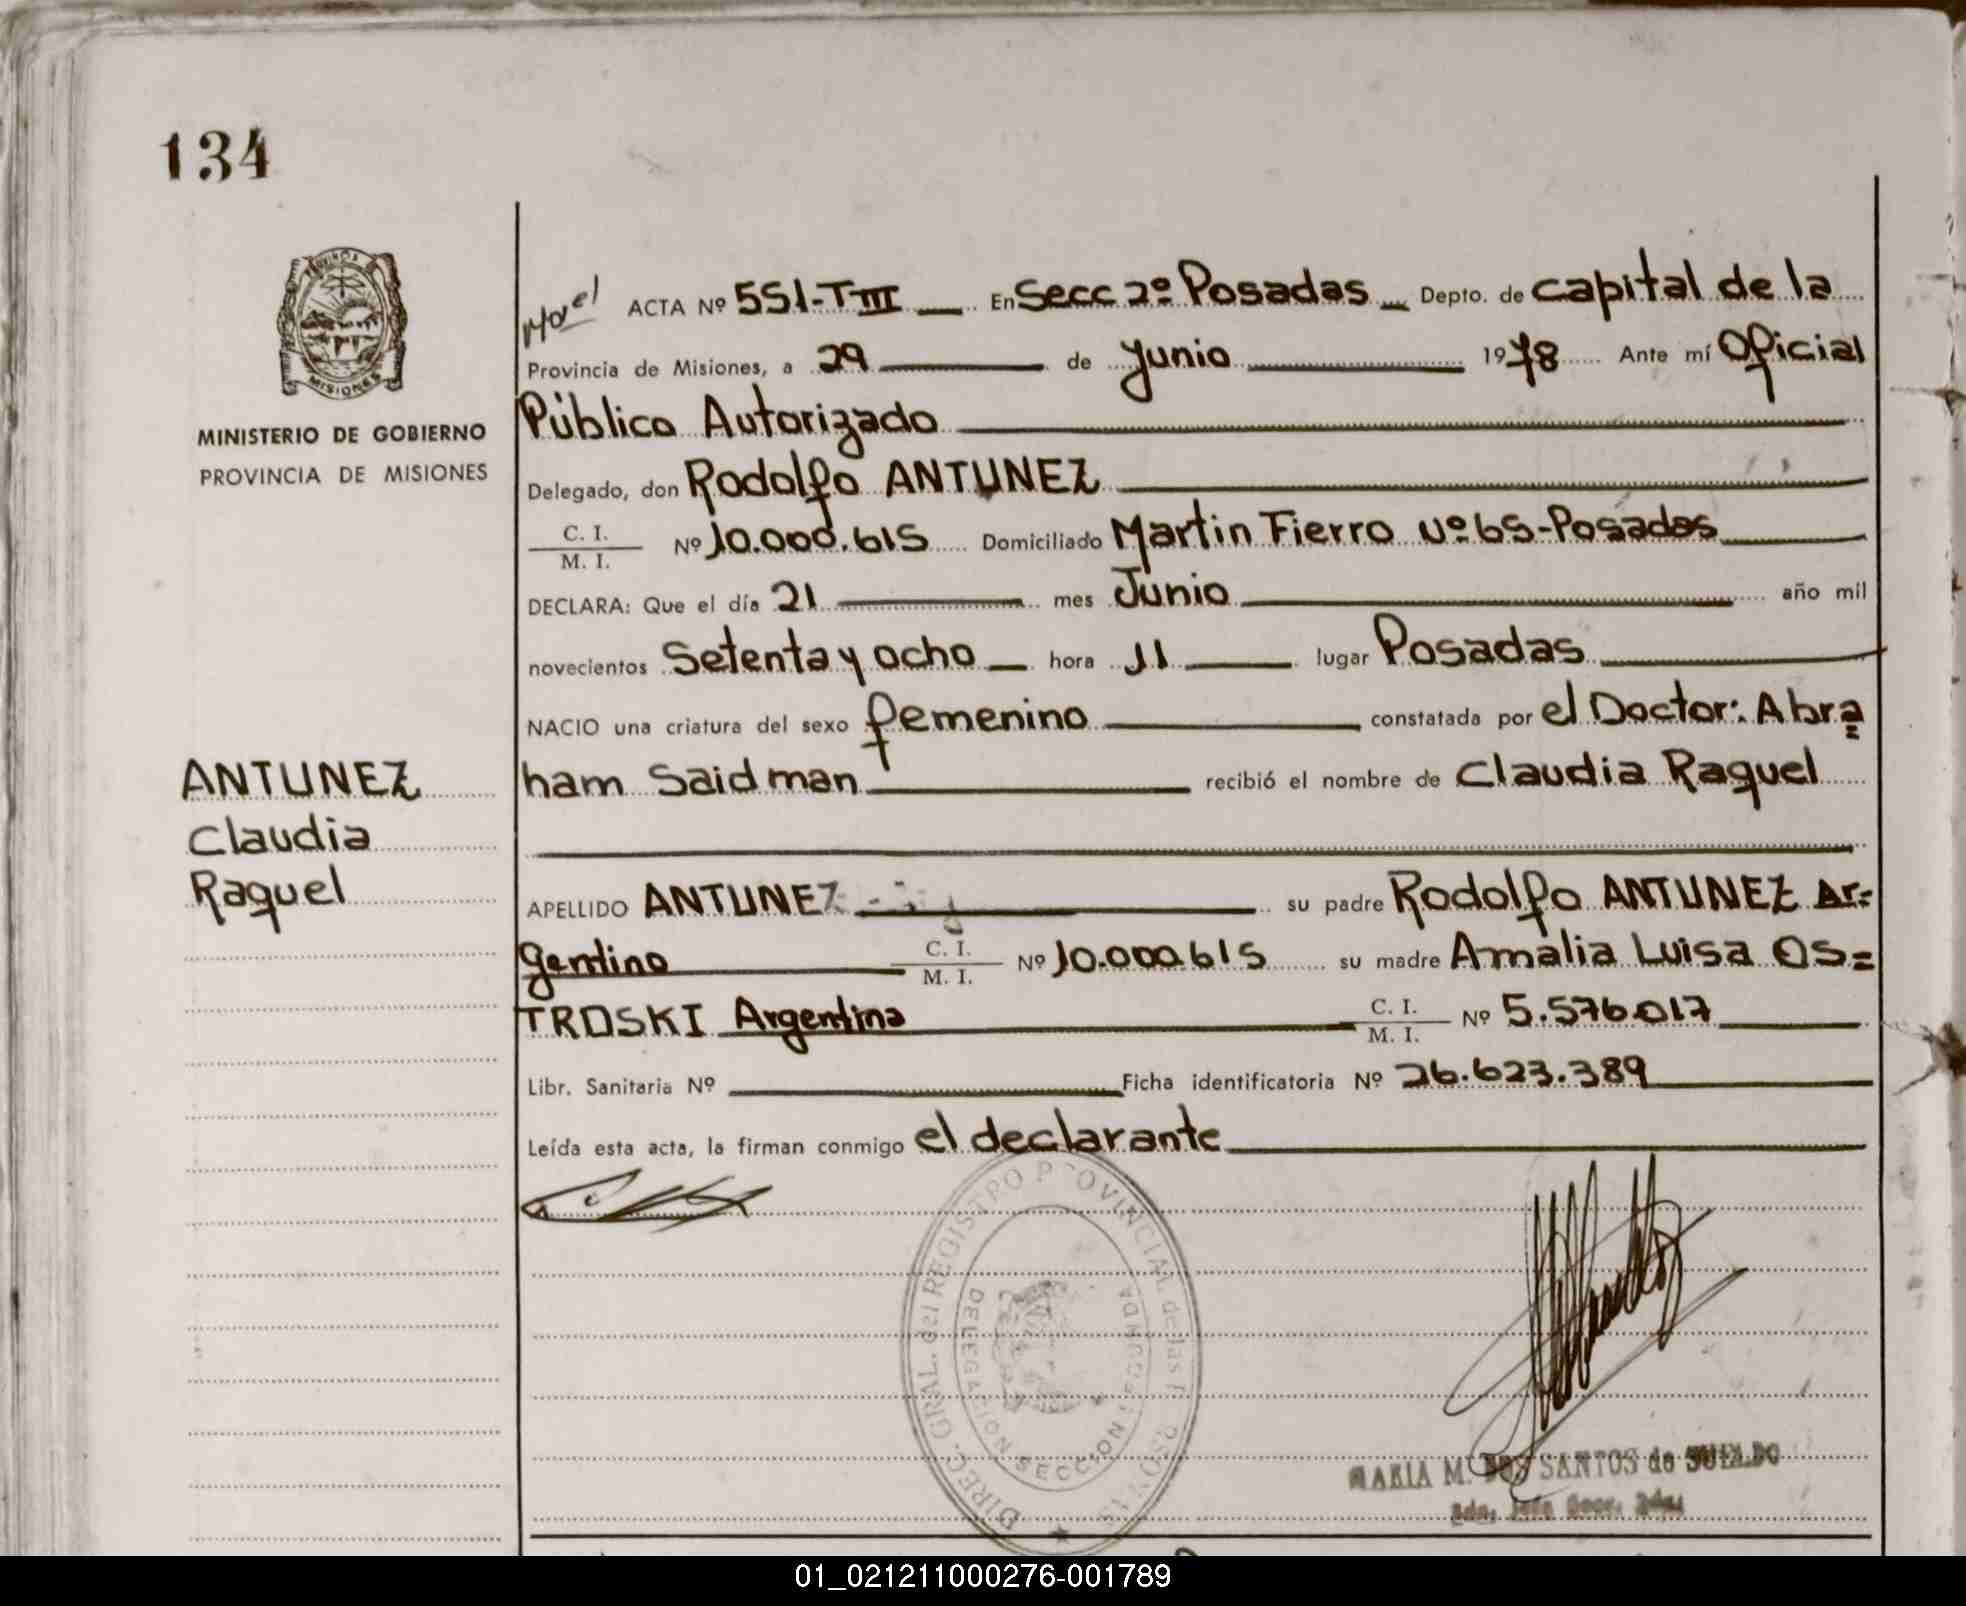 134
PROVINCIA
MISIONES
MINISTERIO DE GOBIERNO
PROVINCIA DE MISIONES
ACTA Nº 551-T-III En Secc 2º Posadas Depto. de capital de la
Provincia de Misiones, a 29 de junio 1978 Ante mí Oficial
Público Autorizado
Delegado, don Rodolfo ANTUNEZ
C. I.
M. I. Nº 10.000.615 Domiciliado Martin Fierro Nº 65-Posadas
DECLARA: Que el día 21 mes Junio año mil
novecientos Setenta y ocho hora 11 lugar Posadas
NACIO una criatura del sexo femenino constatada por el Doctor: Abra=
ham Saidman recibió el nombre de Claudia Raquel
ANTUNEZ
Claudia
Raquel
APELLIDO ANTUNEZ su padre Rodolfo ANTUNEZ Ar=
gentino C. I.
M. I. Nº 10.000.615 su madre Amalia Luisa OS=
TROSKI Argentina C. I.
M. I. Nº 5.576.017
Libr. Sanitaria Nº Ficha identificatoria Nº 26.623.389
Leída esta acta, la firman conmigo el declarante
DIREC. GRAL. del REGISTRO PROVINCIAL de las PERSONAS
DELEGACION SECCION SEGUNDA
MARIA M. DOS SANTOS de
01_021211000276-001789